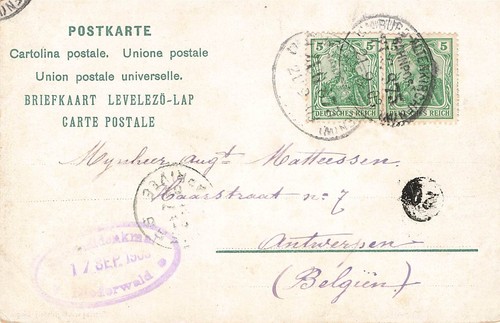 POSTKARTE
Cartolina postale. Unione postale
Union postale universelle.
BRIEFKAART LEVELEZÖ-LAP
CARTE POSTALE
5 5 5
DEUTSCHES REICH DEUTSCHES REICH
Mynheer augt Matteessen.
Haarstraat no 7
Antwerpen
(Belgiën)
17 SEP. 190